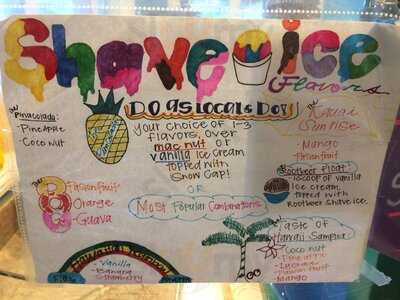 Shave ice
Flavors
Da
Pinacolada:
- Pineapple
- Coconut
DO as Locals Do!
Your choice of 1-3
flavors, over
mac nut or
vanilla ice cream
topped with
Snow Cap!
OR
Most Popular Combinations
Kauai
Sunrise
- Mango
- Passionfruit
Rootbeer Float
1 scoop of vanilla
ice cream,
topped with
Rootbeer shave ice.
P Passionfruit
O Orange
G - Guava
- Vanilla
- Banana
- Strawberry
Taste of
Hawaii Sampler
- Coconut
- Pineapple
- Passion Fruit
- Mango